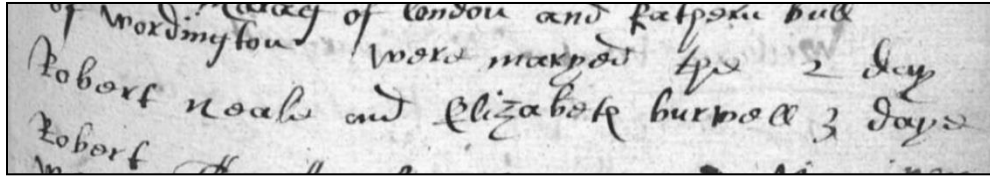 of London and Kathern bull
of wordington were maryed the 2 day
Robert neale and Elizabeth burwell 3 daye
Robert